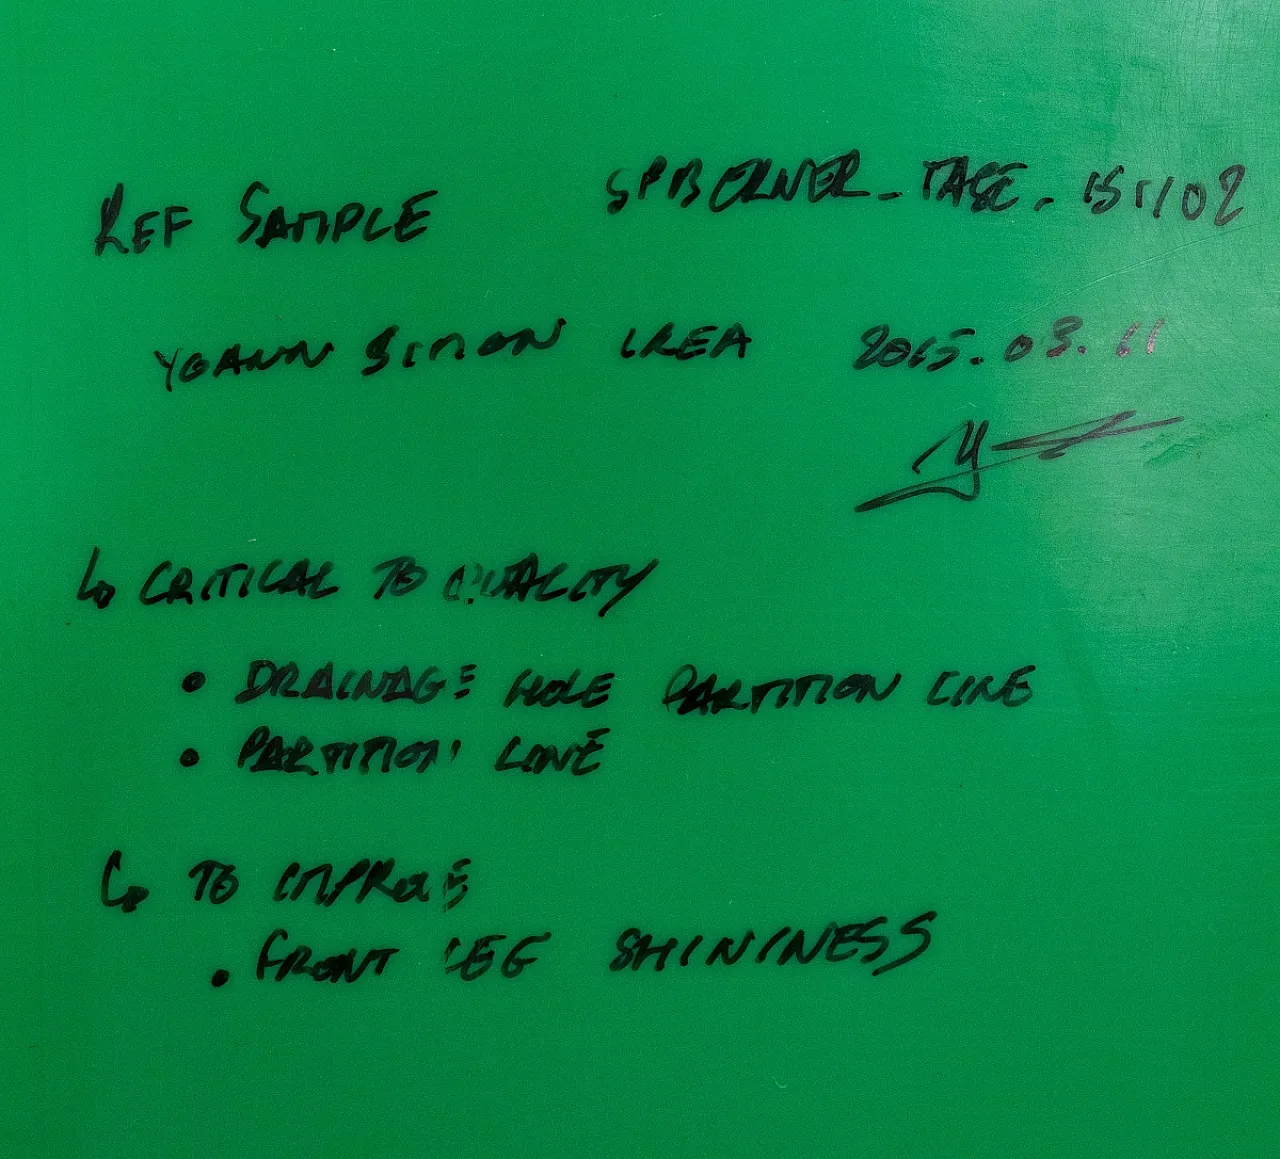 REF SAMPLE SPBERNER_TAGE_151102
YOANN SIMON IKEA 2015.03.11
↳ CRITICAL TO QUALITY
• DRAINAGE HOLE PARTITION LINE
• PARTITION LINE
↳ TO IMPROVE
• FRONT LEG SHININESS